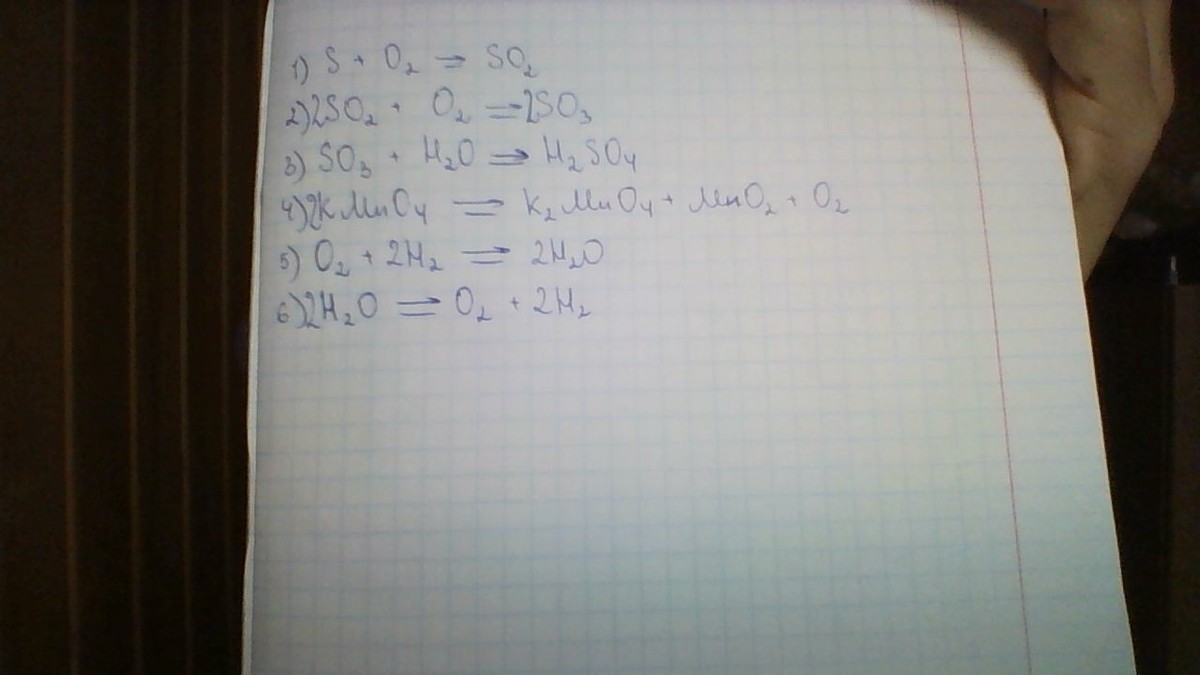 1) S + O₂ = SO₂
2) 2SO₂ + O₂ = 2SO₃
3) SO₃ + H₂O = H₂SO₄
4) 2KMnO₄ = K₂MnO₄ + MnO₂ + O₂
5) O₂ + 2H₂ = 2H₂O
6) 2H₂O = O₂ + 2H₂